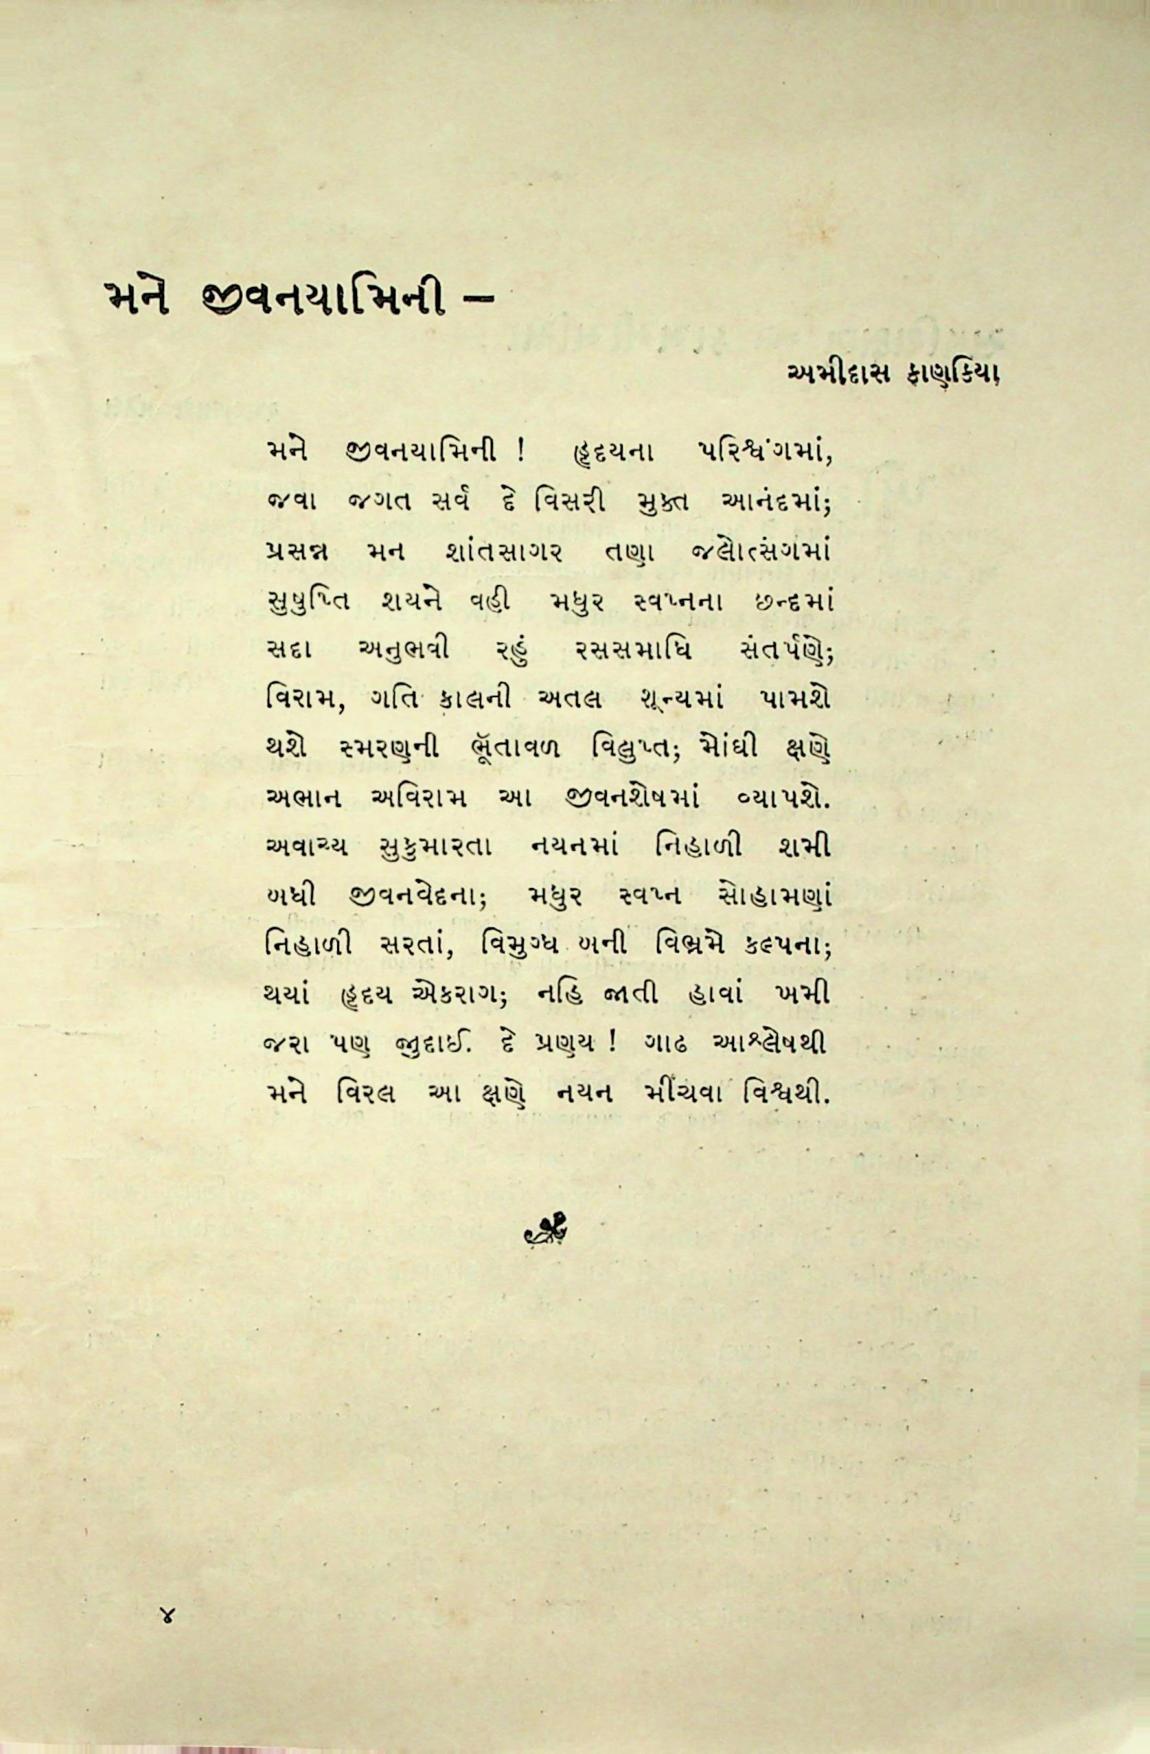 મને જીવનયામિની –
અમીદાસ કાણકિયા
મને જીવનયામિની ! હૃદયના પરિષ્વંગમાં,
જવા જગત સર્વ દે વિસરી મુક્ત આનંદમાં;
પ્રસન્ન મન શાંતસાગર તણા જલોત્સંગમાં
સુષુપ્તિ શયને વહી મધુર સ્વપ્નના છન્દમાં
સદા અનુભવી રહું રસસમાધિ સંતર્પણે;
વિરામ, ગતિ કાલની અતલ શૂન્યમાં પામશે
થશે સ્મરણની ભૂતાવળ વિલુપ્ત; મોંઘી ક્ષણે
અભાન અવિરામ આ જીવનશેષમાં વ્યાપશે.
અવાચ્ય સુકુમારતા નયનમાં નિહાળી શમી
બધી જીવનવેદના; મધુર સ્વપ્ન સોહામણાં
નિહાળી સરતાં, વિમુગ્ધ બની વિભ્રમે કલ્પના;
થયાં હૃદય એકરાગ; નહિ જાતી હાવાં ખમી
જરા પણ જુદાઈ. દે પ્રણય ! ગાઢ આશ્લેષથી
મને વિરલ આ ક્ષણે નયન મીંચવા વિશ્વથી.
૪